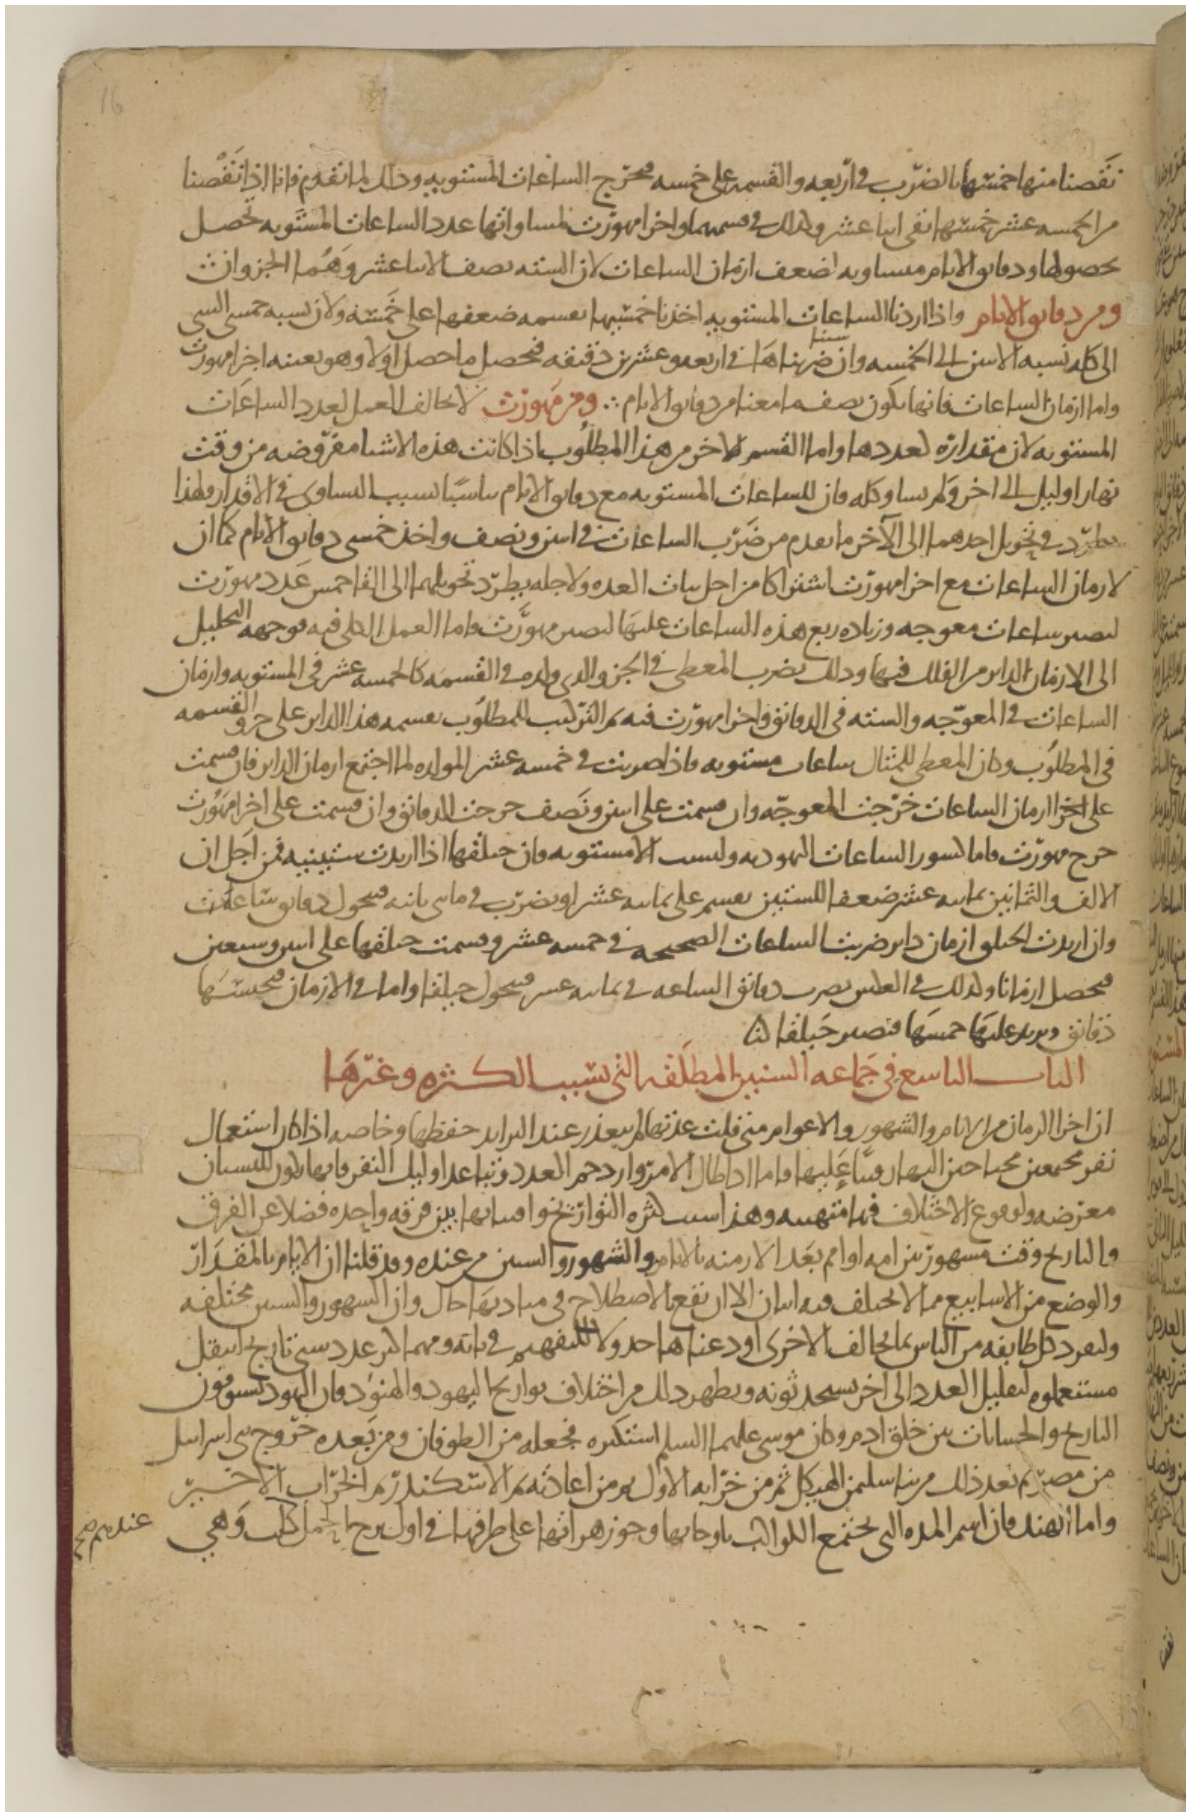 16
نقصنا منها خمسها بالضرب في اربعه والقسمه على خمسه فخرج الساعات المستويه وذلك لما تقدم فانا اذا نقصنا
من الخمسه عشر خمسها بقى اثنا عشر وكذلك في قسمتها واخرا مهورت لمساواتها عدد الساعات المستويه تحصل
بحصولها ودقائق الايام مساويه لضعف ازمان الساعات لان السته نصف الاثنا عشر وهما الجزوان
ومن دقائق الايام واذا اردنا الساعات المستويه اخذنا خمسيها بقسمه ضعفها على خمسه ولان نسبه خمسى الشى
الى كله نسبه الاثنين الى الخمسه وان ضربناها في اربعه وعشرين دقيقه فيحصل ما حصل اولا وهو بعينه اجزا مهورت
واما ازمان الساعات فانها تكون نصف ما معنا من دقائق الايام ومن مهورت لا يخالف العمل لعدد الساعات
المستويه لان مقداره لعددها واما القسم الاخر من هذا المطلوب اذا كانت هذه الاشيا مفروضه من وقت
نهار او ليل الى اخر ولم يساو كله فان للساعات المستويه مع دقائق الايام تناسبا بسبب التساوى في الاقدار ولهذا
يطرد في تحويل احدهما الى الآخر ما تقدم من ضرب الساعات في اثنين ونصف واخذ خمسى دقائق الايام كما ان
لازمان الساعات مع اجزا مهورت اشتراكا من اجل ثبات العده ولاجله يطرد تحويلهما الى القا خمس عدد مهورت
لتصير ساعات معوجه وزياده ربع هذه الساعات عليها لتصير مهورت واما العمل الكلى فيه فوجهه التحليل
الى الازمان الداير من الفلك فيها وذلك بضرب المعطى في الجزو الذى ولده في القسمه كالخمسه عشر في المستويه وازمان
الساعات في المعوجه والسته في الدقائق واجزا مهورت فيه ثم التركيب للمطلوب بقسمه هذا الداير على جزو القسمه
في المطلوب وكان المعطى للمثال ساعات مستويه فاذا ضربت في خمسه عشر المولده لها اجتمع ازمان الداير فان قسمت
على اجزا ازمان الساعات خرجت المعوجه وان قسمت على اثنين ونصف خرجت الدقائق وان قسمت على اجزا مهورت
خرج مهورت فاما كسور الساعات اليهوديه وليست الا مستويه فان حيلقها اذا اريدت ستينيه فمن اجل ان
الالف والثمانين ثمانيه عشر ضعفا للستين يقسم على ثمانيه عشر او يضرب في مائى ثانيه فيحول دقائق ساعات
وان اريدت الحيلق ازمان داير ضربت الساعات الصحيحه في خمسه عشر وقسمت حيلقها على اثنين وسبعين
فيحصل ازمانا وكذلك في العكس يضرب دقائق الساعه في ثمانيه عشر فيتحول حيلقا واما في الازمان فيجنسها
دقائق ويزيد عليها خمسها فتصير حيلقا لنا
الباب التاسع في جماعه السنين المطلقه التى بسبب الكثره وغيرها
ان اجزا الزمان من الايام والشهور والاعوام متى قلت عدتها لم يتعذر عند التزايد حفظها وخاصه اذا كان استعمال
نفر مجتمعين محتاجين اليها رقيبا عليها فاما اذا طال الامر وازدحم العدد وتباعد اوليك النفر فانها تكون للنسيان
معرضه ولوقوع الاختلاف فيها متهيئه وهذا سبب كثره التواريخ واقسامها بين فرقه واحده فضلا عن الفرق
والتاريخ وقت مشهور بين امه او امم بعد الازمنه بالايام والشهور والسنين من عنده وقد قلنا ان الايام بالمقدار
والوضع من الاسابيع مما لا يختلف فيه اثنان الا ان تقع بالاصطلاح في مباديها حال وان الشهور والسنين مختلفه
ولتفرد كل طايفه من الناس بما يخالف الاخرى اودعناها احدولا للتفهيم في بابه ومهما كثر عدد سنى تاريخ انتقل
مستعملوه لتقليل العدد الى اخر يستحدثونه ويظهر ذلك من اختلاف تواريخ اليهود والهنود فان اليهود يسوقون
التاريخ والحسابات بين خلق ادم وكان موسى عليهما السلم استنكره فجعله من الطوفان ومن بعده خروج بنى اسرايل
من مصر ثم بعد ذلك من بنا سليمن الهيكل ثم من خرابه الاول ثم من اعادته ثم الاسكندر ثم الخراب الاخير
واما الهند فان اسم المده التى تجتمع الكواكب باوجاتها وجوزهراتها على طرفيها في اول برج الحمل كلب وهي
عندهم صح